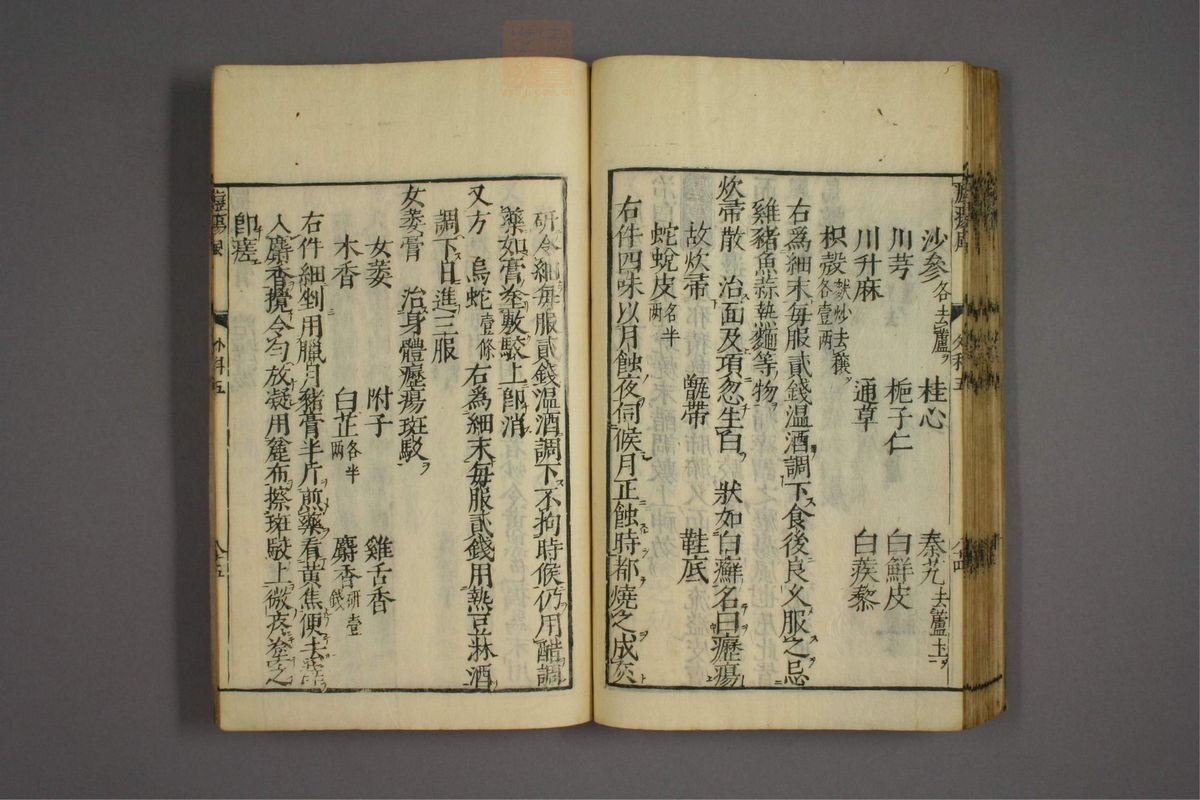 沙參各去蘆 桂心 秦艽去蘆土
川芎 梔子仁 白鮮皮
川升麻 通草 白蒺藜
枳殼麩炒去穰各壹兩
右爲細末毎服貳錢溫酒調下食後良久服之忌
雞豬魚蒜熱麵等物
炊帚散 治面及項忽生白 狀如白癬名曰癧瘍
故炊帚 甑帶 鞋底
蛇蛻皮各半兩
右件四味以月蝕夜伺候月正蝕時都燒之成灰
研令細每服貳錢溫酒調下不拘時候仍用醋調
藥如膏塗敷駁上卽消
又方 烏蛇壹條 右爲細末每服貳錢用熱豆淋酒
調下日進三服
女萎膏 治身體癧瘍斑駁
女萎 附子 雞舌香
木香 白芷各半兩 麝香研壹錢
右件細剉用臘月豬膏半斤煎藥看黃焦便去滓
入麝香攪令勻放凝用麄布擦斑駁上微赤塗之
卽瘥
外科五